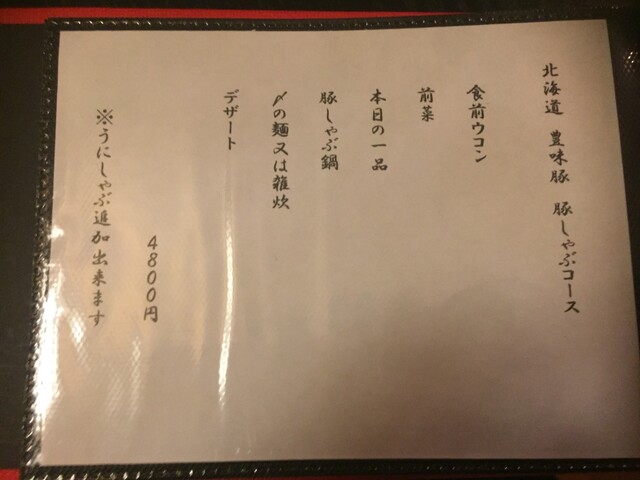 北海道 豊味豚 豚しゃぶコース
食前ウコン
前菜
本日の一品
豚しゃぶ鍋
〆の麺又は雑炊
デザート
4800円
※うにしゃぶ追加出来ます